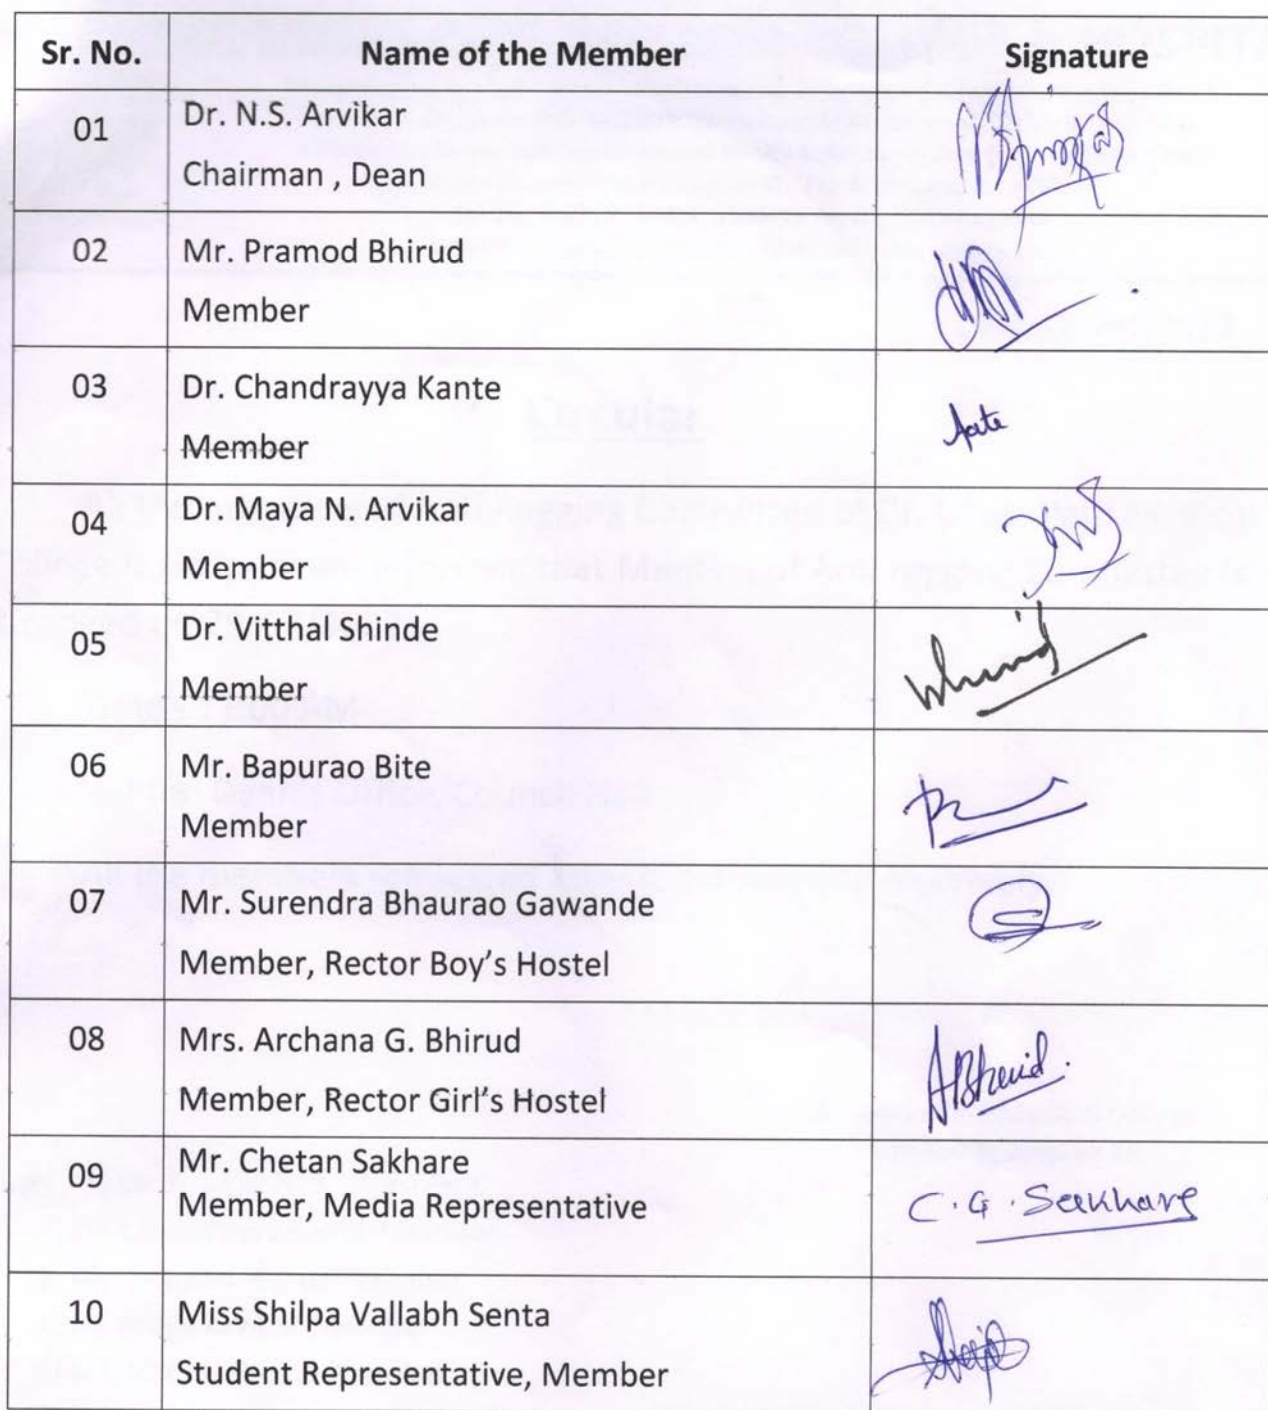 Sr. No. Name of the Member Signature
01 Dr. N.S. Arvikar
Chairman , Dean
02 Mr. Pramod Bhirud
Member
03 Dr. Chandrayya Kante
Member
04 Dr. Maya N. Arvikar
Member
05 Dr. Vitthal Shinde
Member
06 Mr. Bapurao Bite
Member
07 Mr. Surendra Bhaurao Gawande
Member, Rector Boy's Hostel
08 Mrs. Archana G. Bhirud
Member, Rector Girl's Hostel
ABhirud.
09 Mr. Chetan Sakhare
Member, Media Representative
C. G. Sakhare
10 Miss Shilpa Vallabh Senta
Student Representative, Member